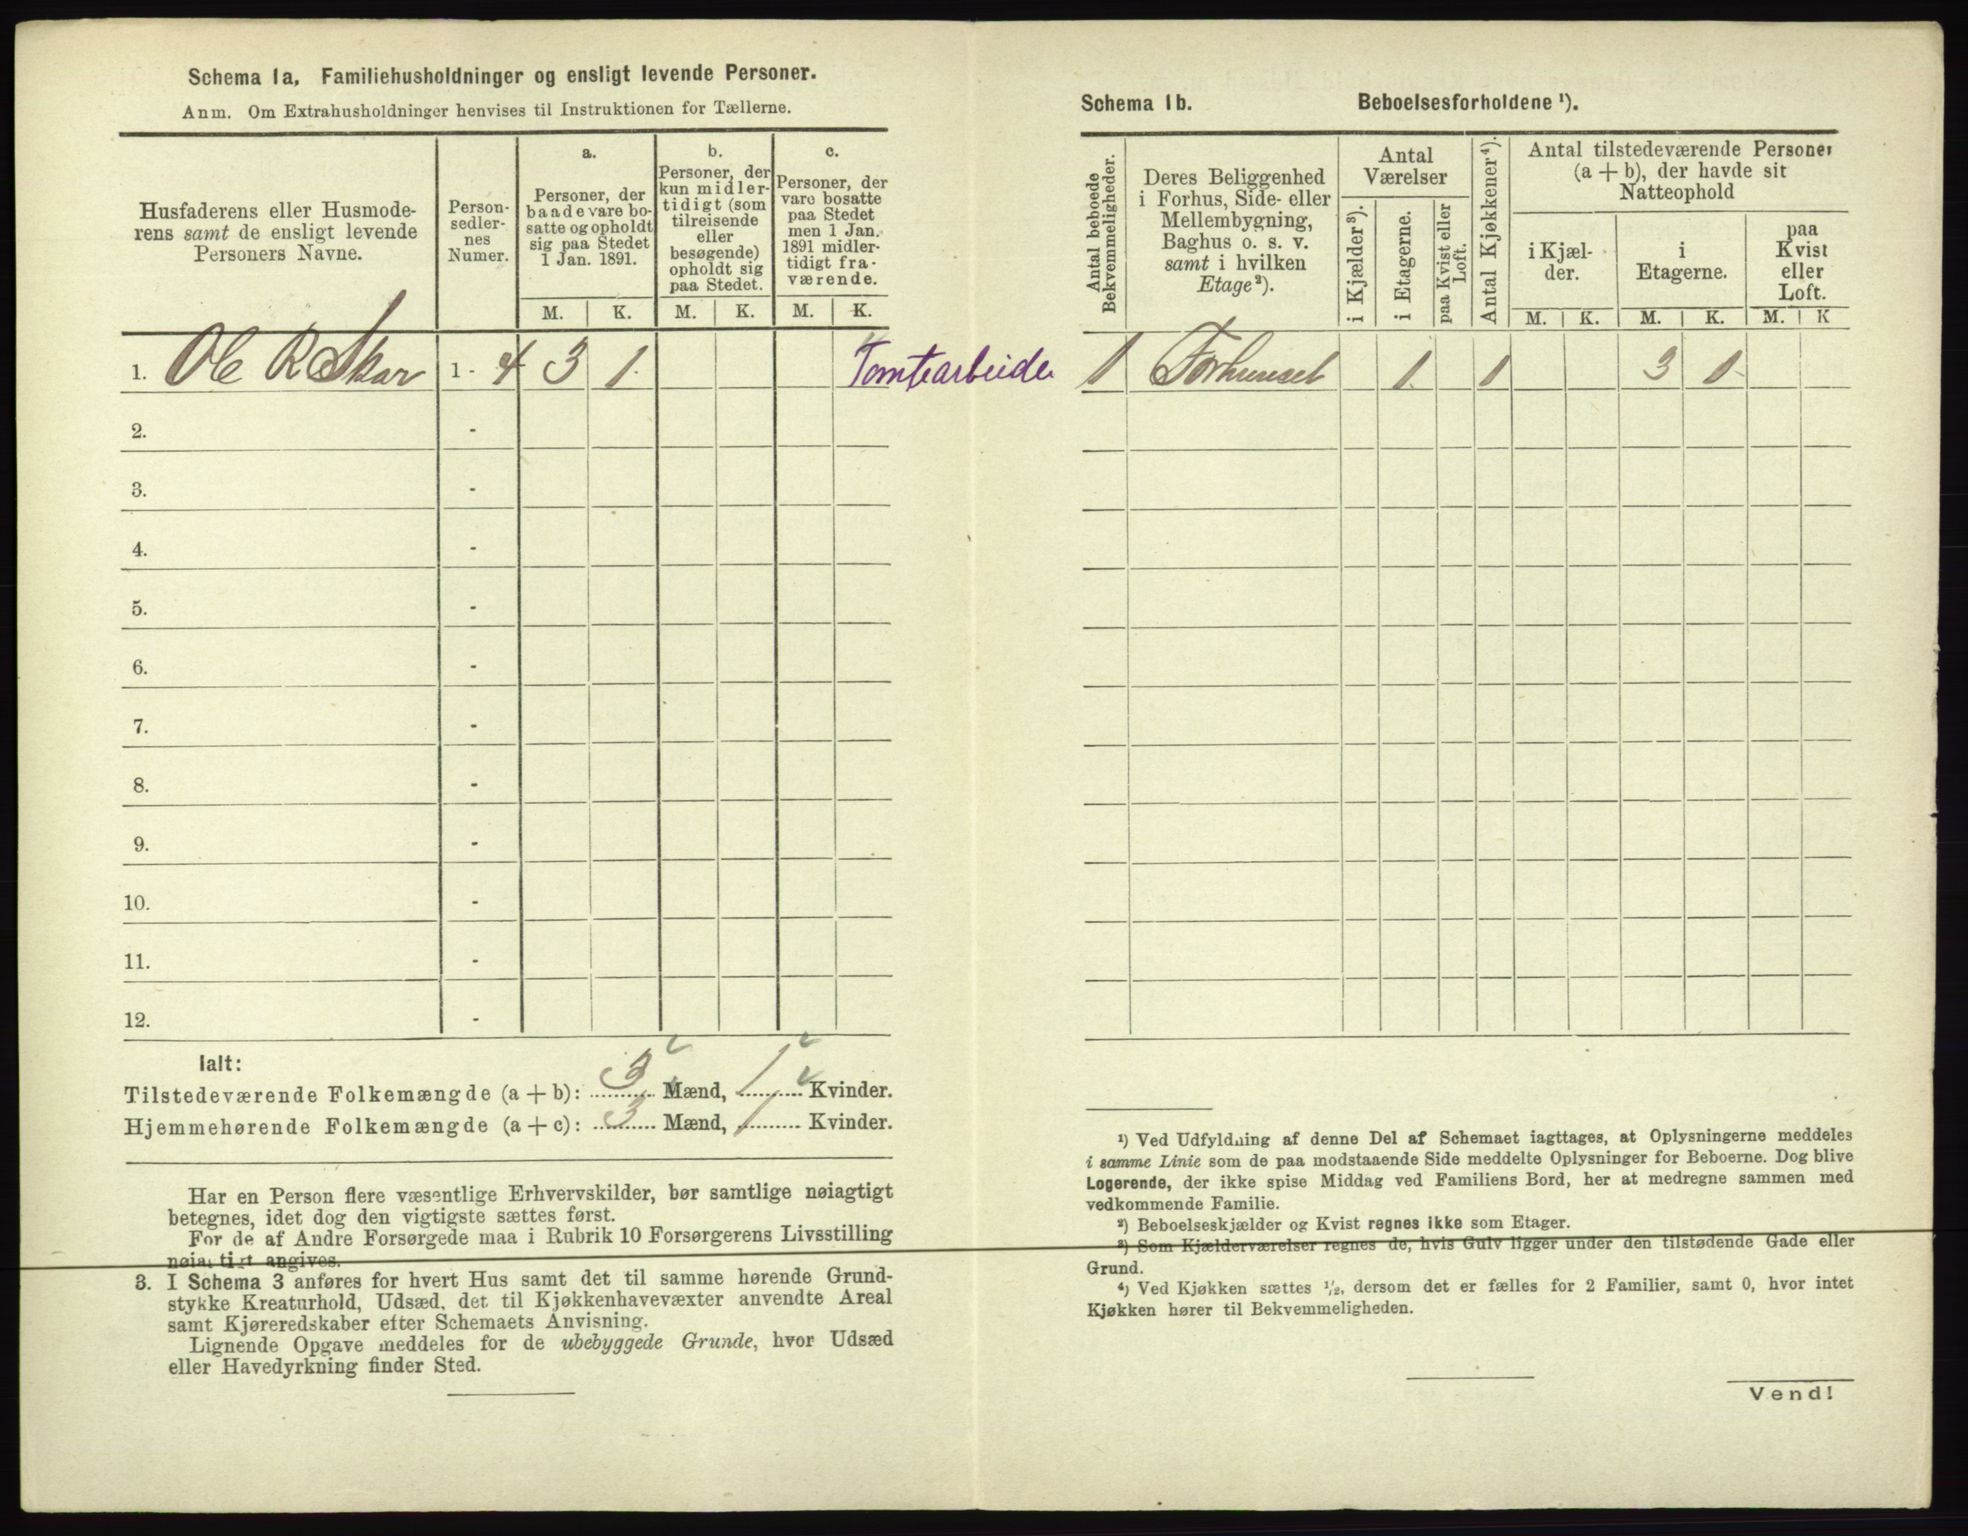 Schema 1a, Familiehusholdninger og ensligt levende Personer.
Anm. Om Extrahusholdninger henvises til Instruktionen for Tællerne.
Husfaderens eller Husmode-
rens samt de ensligt levende
Personers Navne.
Person-
sedler-
nes
Numer.
a.
Personer, der
baade vare bo-
satte og opholdt
sig paa Stedet
1 Jan. 1891.
b.
Personer, der
kun midler-
tidigt (som
tilreisende
eller
besøgende)
opholdt sig
paa Stedet.
c.
Personer, der
vare bosatte
paa Stedet
men 1 Jan.
1891 midler-
tidigt fra-
værende.
M. K. M. K. M. K.
1. Ole R Skar 1 - 4 3 1 Tomtearbeider
2. -
3. -
4. -
5. -
6. -
7. -
8. -
9. -
10. -
11. -
12. -
Ialt:
Tilstedeværende Folkemængde (a + b): 3 Mænd, 1 Kvinder.
Hjemmehørende Folkemængde (a + c): 3 Mænd, 1 Kvinder.
Har en Person flere væsentlige Erhvervskilder, bør samtlige nøiagtigt
betegnes, idet dog den vigtigste sættes først.
For de af Andre Forsørgede maa i Rubrik 10 Forsørgerens Livsstilling
nøiagtigt angives.
3. I Schema 3 anføres for hvert Hus samt det til samme hørende Grund-
stykke Kreaturhold, Udsæd, det til Kjøkkenhavevæxter anvendte Areal
samt Kjøreredskaber efter Schemaets Anvisning.
Lignende Opgave meddeles for de ubebyggede Grunde, hvor Udsæd
eller Havedyrkning finder Sted.
Schema 1b. Beboelsesforholdene ¹).
Antal beboede
Bekvemmeligheder.
Deres Beliggenhed
i Forhus, Side- eller
Mellembygning,
Baghus o. s. v.
samt i hvilken
Etage²).
Antal
Værelser
i Kjælder³).
i Etagerne.
paa Kvist eller
Loft.
Antal Kjøkkener⁴).
Antal tilstedeværende Personer
(a + b), der havde sit
Natteophold
i Kjæl-
der.
i
Etagerne.
paa
Kvist
eller
Loft.
M. K. M. K. M. K
1 Forhuset 1 1 3 1
¹) Ved Udfyldning af denne Del af Schemaet iagttages, at Oplysningerne meddeles
i samme Linie som de paa modstaaende Side meddelte Oplysninger for Beboerne. Dog blive
Logerende, der ikke spise Middag ved Familiens Bord, her at medregne sammen med
vedkommende Familie.
²) Beboelseskjælder og Kvist regnes ikke som Etager.
³) Som Kjælderværelser regnes de, hvis Gulv ligger under den tilstødende Gade eller
Grund.
⁴) Ved Kjøkken sættes ¹/₂, dersom det er fælles for 2 Familier, samt 0, hvor intet
Kjøkken hører til Bekvemmeligheden.
Vend!